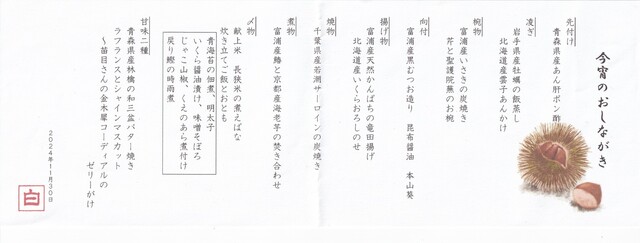 今宵のおしながき
先付け
青森県産あん肝ポン酢
凌ぎ
岩手県産牡蠣の飯蒸し
北海道産雲子あんかけ
椀物
富浦産いさきの炭焼き
芹と聖護院蕪のお椀
向付
富浦産黒むつお造り 昆布醤油 本山葵
揚げ物
富浦産天然かんぱちの竜田揚げ
北海道産いくらおろしのせ
焼物
千葉県産若潮サーロインの炭焼き
煮物
富浦産鰆と京都産海老芋の焚き合わせ
〆物
献上米 長狭米の煮えばな
炊き立てご飯とおとも
青海苔の佃煮、明太子
いくら醤油漬け、味噌そぼろ
じゃこ山椒、くえのあら煮付け
戻り鰹の時雨煮
甘味二種
青森県産林檎の和三盆バター焼き
ラフランスとシャインマスカット
～苗目さんの金木犀コーディアルの
ゼリーがけ
2024年11月30日
白